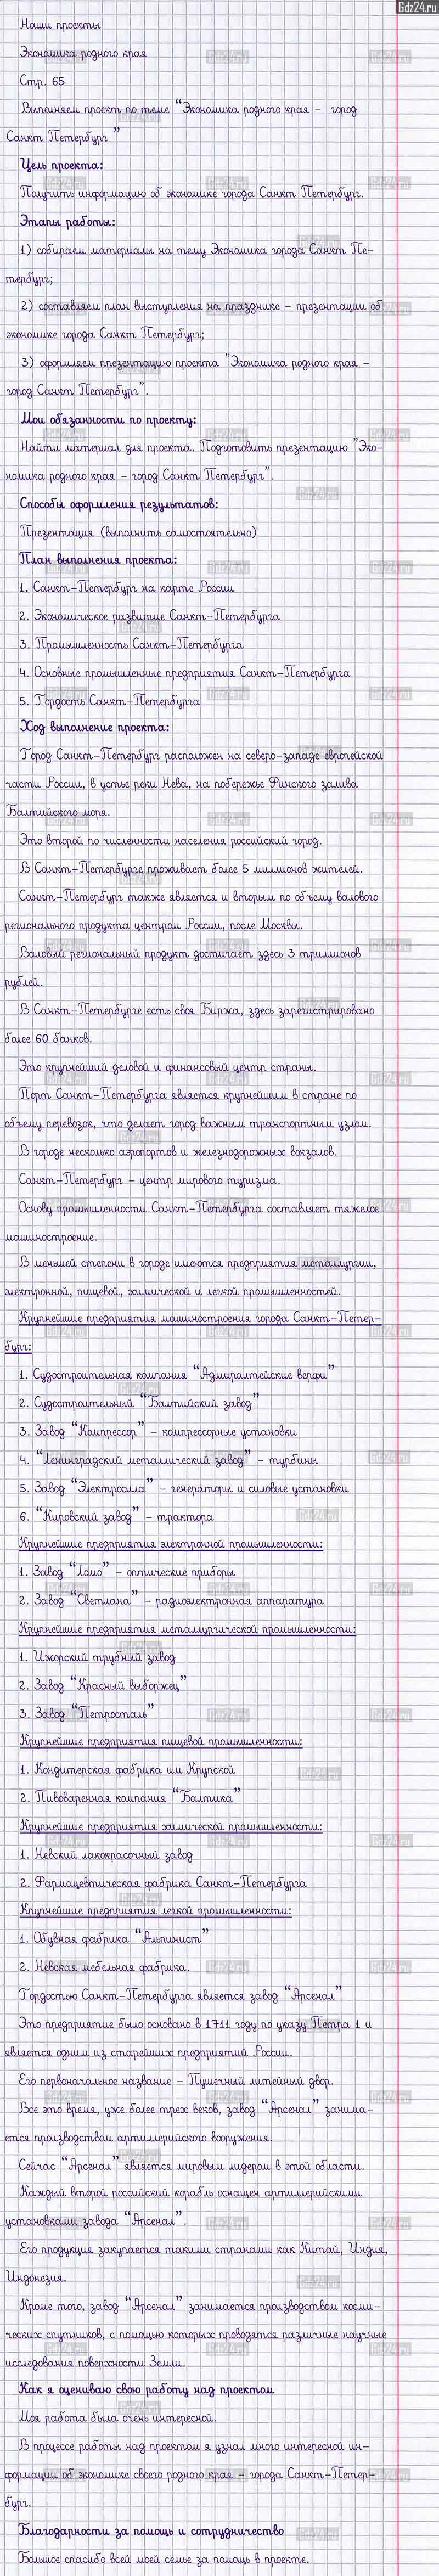 Gdz24.ru
Наши проекты
Экономика родного края
Стр. 65
Выполняем проект по теме “Экономика родного края – город
Санкт Петербург”
Цель проекта:
Получить информацию об экономике города Санкт Петербург.
Этапы работы:
1) собираем материалы на тему Экономика города Санкт Пе-
тербург;
2) составляем план выступления на празднике – презентации об
экономике города Санкт Петербург;
3) оформляем презентацию проекта "Экономика родного края –
город Санкт Петербург".
Мои обязанности по проекту:
Найти материал для проекта. Подготовить презентацию "Эко-
номика родного края – город Санкт Петербург".
Способы оформления результатов:
Презентация (выполнить самостоятельно)
План выполнения проекта:
1. Санкт-Петербург на карте России
2. Экономическое развитие Санкт-Петербурга
3. Промышленность Санкт-Петербурга
4. Основные промышленные предприятия Санкт-Петербурга
5. Гордость Санкт-Петербурга
Ход выполнение проекта:
Город Санкт-Петербург расположен на северо-западе европейской
части России, в устье реки Нева, на побережье Финского залива
Балтийского моря.
Это второй по численности населения российский город.
В Санкт-Петербурге проживает более 5 миллионов жителей.
Санкт-Петербург также является и вторым по объему валового
регионального продукта центром России, после Москвы.
Валовый региональный продукт достигает здесь 3 триллионов
рублей.
В Санкт-Петербурге есть своя Биржа, здесь зарегистрировано
более 60 банков.
Это крупнейший деловой и финансовый центр страны.
Порт Санкт-Петербурга является крупнейшим в стране по
объему перевозок, что делает город важным транспортным узлом.
В городе несколько аэропортов и железнодорожных вокзалов.
Санкт-Петербург – центр мирового туризма.
Основу промышленности Санкт-Петербурга составляет тяжелое
машиностроение.
В меньшей степени в городе имеются предприятия металлургии,
электронной, пищевой, химической и легкой промышленностей.
Крупнейшие предприятия машиностроения города Санкт-Петер-
бург:
1. Судостроительная компания “Адмиралтейские верфи”
2. Судостроительный “Балтийский завод”
3. Завод “Компрессор” – компрессорные установки
4. “Ленинградский металлический завод” – турбины
5. Завод “Электросила” – генераторы и силовые установки
6. “Кировский завод” – трактора
Крупнейшие предприятия электронной промышленности:
1. Завод “Ломо” – оптические приборы
2. Завод “Светлана” – радиоэлектронная аппаратура
Крупнейшие предприятия металлургической промышленности:
1. Ижорский трубный завод
2. Завод “Красный выборжец”
3. Завод “Петросталь”
Крупнейшие предприятия пищевой промышленности:
1. Кондитерская фабрика им Крупской
2. Пивоваренная компания “Балтика”
Крупнейшие предприятия химической промышленности:
1. Невский лакокрасочный завод
2. Фармацевтическая фабрика Санкт-Петербурга
Крупнейшие предприятия легкой промышленности:
1. Обувная фабрика “Альпинист”
2. Невская мебельная фабрика.
Гордостью Санкт-Петербурга является завод “Арсенал”
Это предприятие было основано в 1711 году по указу Петра 1 и
является одним из старейших предприятий России.
Его первоначальное название – Пушечный литейный двор.
Все это время, уже более трех веков, завод “Арсенал” занима-
ется производством артиллерийского вооружения.
Сейчас “Арсенал” является мировым лидером в этой области.
Каждый второй российский корабль оснащен артиллерийскими
установками завода “Арсенал”.
Его продукция закупается такими странами как Китай, Индия,
Индонезия.
Кроме того, завод “Арсенал” занимается производством косми-
ческих спутников, с помощью которых проводятся различные научные
исследования поверхности Земли.
Как я оцениваю свою работу над проектом
Моя работа была очень интересной.
В процессе работы над проектом я узнал много интересной ин-
формации об экономике своего родного края – города Санкт-Петер-
бург.
Благодарности за помощь и сотрудничество
Большое спасибо всей моей семье за помощь в проекте.